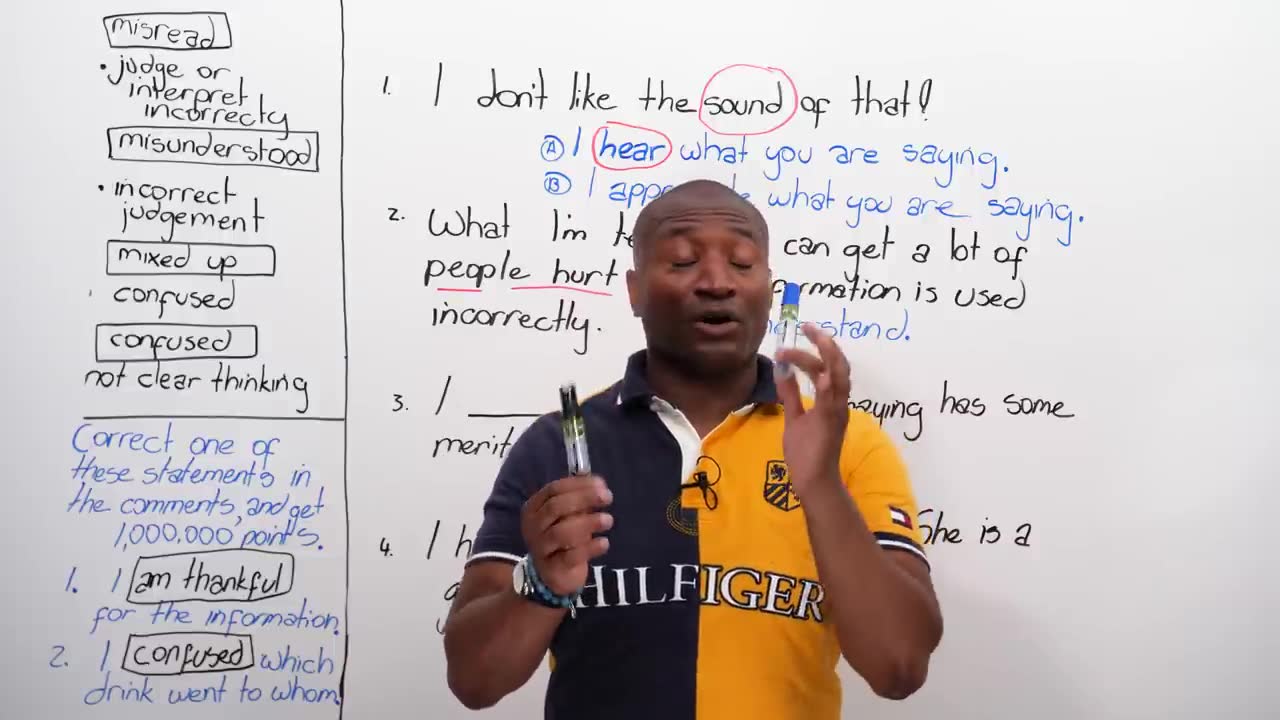 misread
• judge or
interpret
incorrecty
misunderstood
• incorrect
judgement
mixed up
confused
confused
not clear thinking
Correct one of
these statements in
the comments, and get
1,000,000 points.
1. I am thankful
for the information.
2. I confused which
drink went to whom.
1. I don't like the sound of that!
Ⓐ I hear what you are saying.
Ⓑ I what you are saying.
2. What I'm can get a lot of
people hurt is used
incorrectly.
3. I ____ has some
merit
4. I She is a
HILFIGER